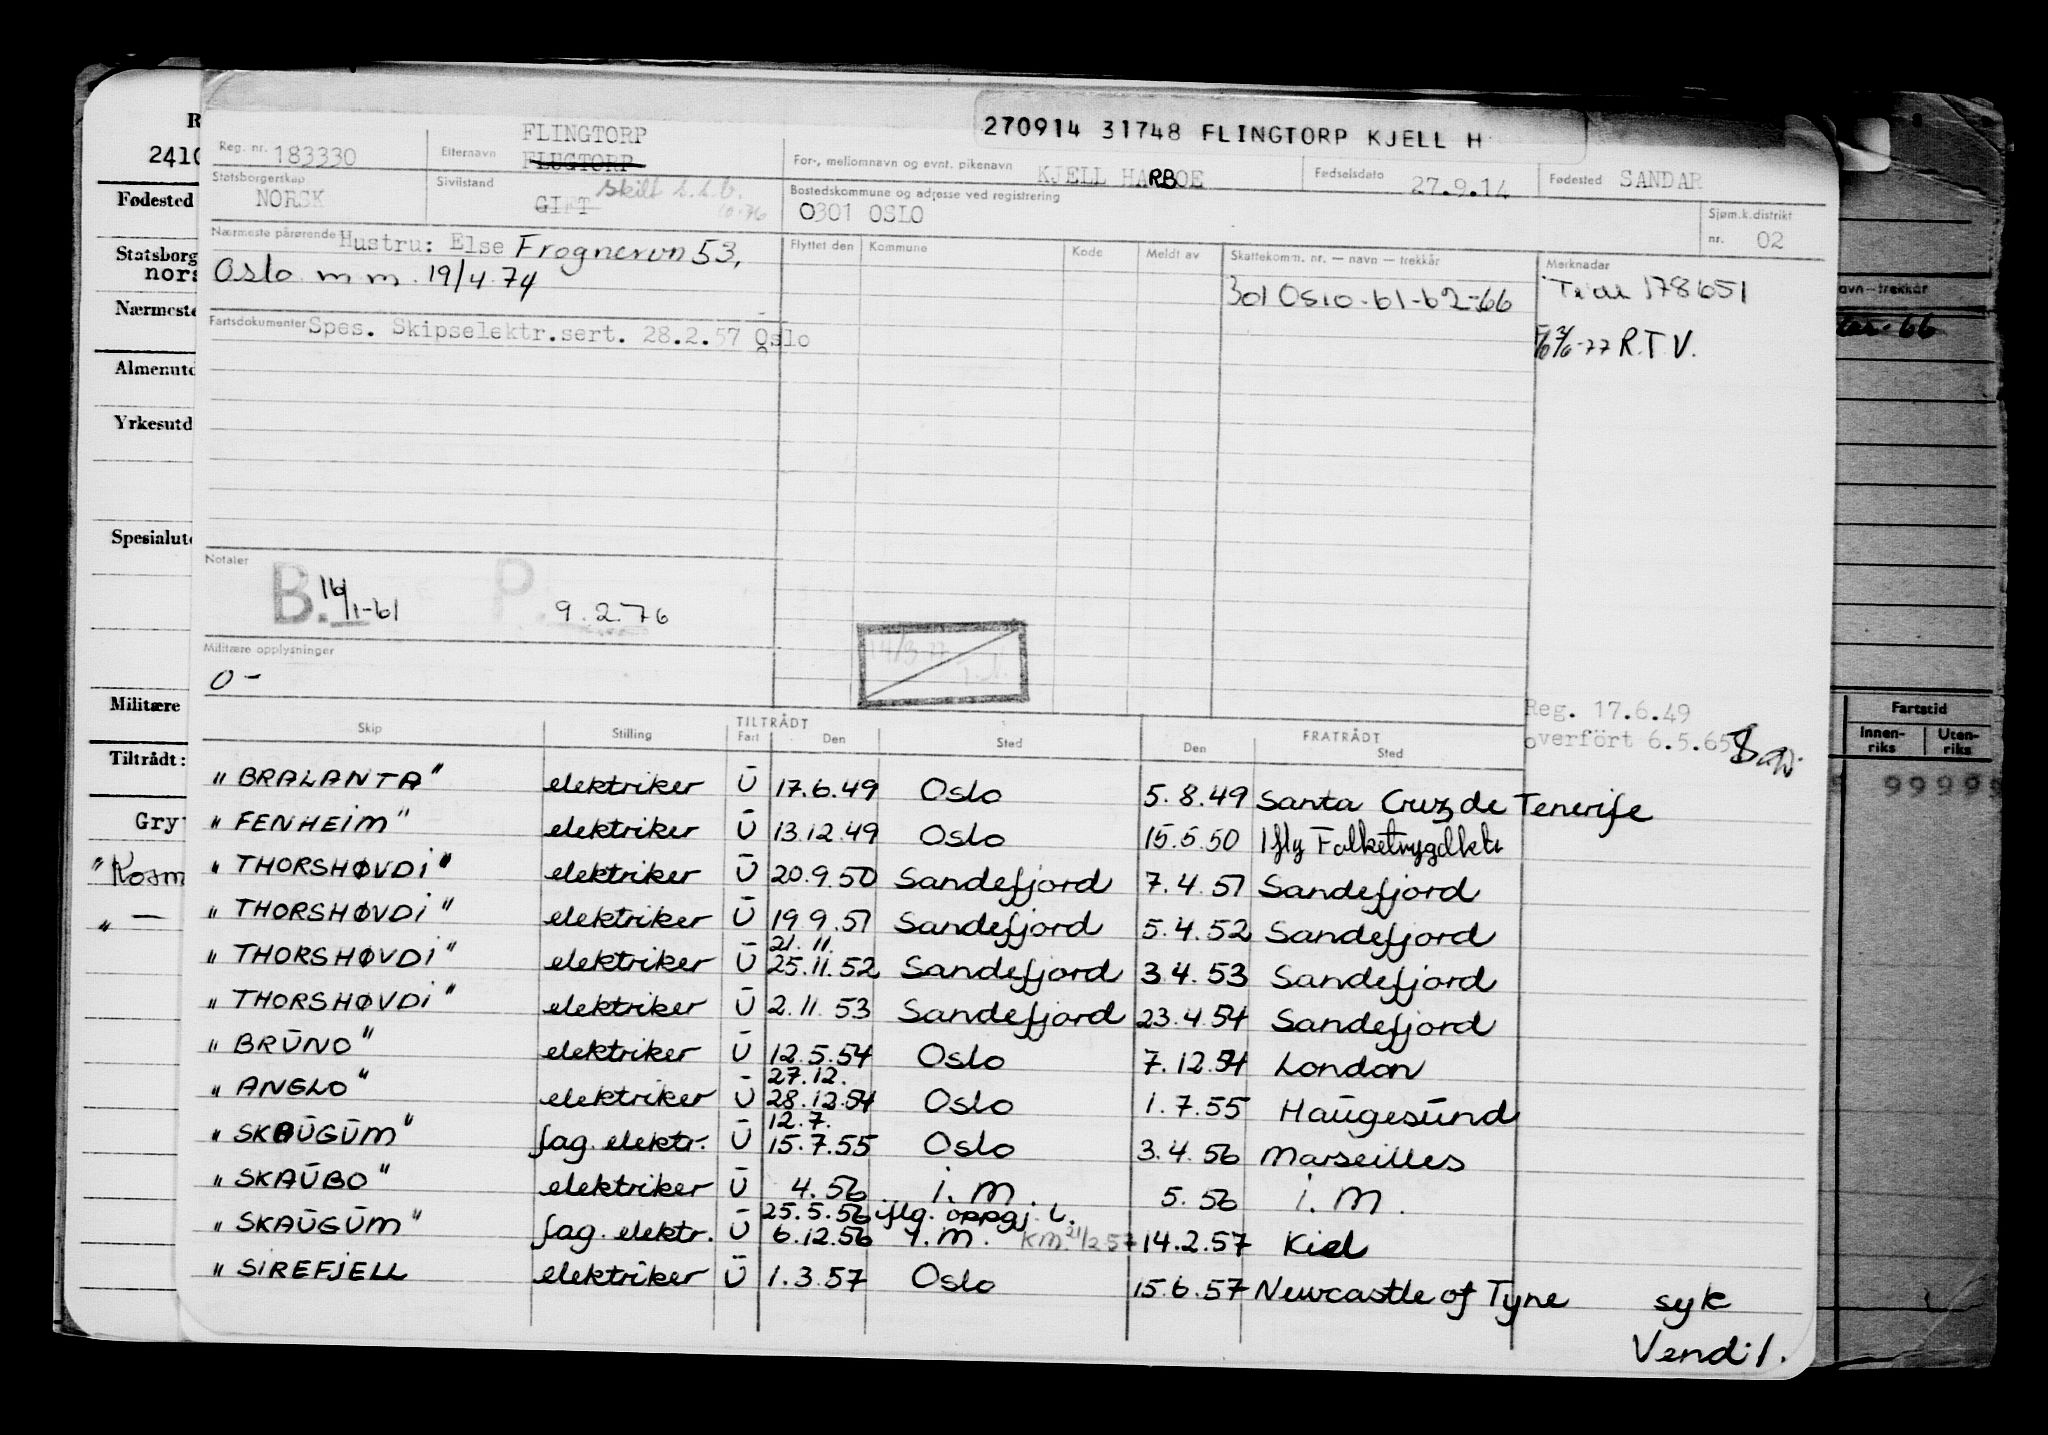 270914 31748 FLINGTORP KJELL H
Reg. nr. 183330 Etternavn FLINGTORP FLUGTORP For-, mellomnavn og evnt. pikenavn KJELL HARBOE Fødselsdato 27.9.14 Fødested SANDAR
Statsborgerskap NORSK Sivilstand GIFT Skilt Bostedskommune og adresse ved registrering 0301 OSLO Sjøm.k.distrikt nr. 02
Nærmeste pårørende Hustru: Else Frognervn 53,
Oslo m m. 19/4.74
Flyttet den Kommune Kode Meldt av Skattekomm. nr. — navn — trekkår Merknader
301 Oslo-61-62-66 178651
-77 R.T.V.
Fartsdokumenter Spes. Skipselektr.sert. 28.2.57 Oslo
Notater
B. 16/1-61 P. 9.2.76
Militære opplysninger
0 -
Reg. 17.6.49
overfört 6.5.65
Skip Stilling TILTRÅDT Fart Den Sted FRATRÅDT Den Sted
"BRALANTA" elektriker U 17.6.49 Oslo 5.8.49 Santa Cruz de Tenerife
"FENHEIM" elektriker U 13.12.49 Oslo 15.5.50
"THORSHØVDI" elektriker U 20.9.50 Sandefjord 7.4.51 Sandefjord
"THORSHØVDI" elektriker U 19.9.51 Sandefjord 5.4.52 Sandefjord
"THORSHØVDI" elektriker U 21.11. 25.11.52 Sandefjord 3.4.53 Sandefjord
"THORSHØVDI" elektriker U 2.11.53 Sandefjord 23.4.54 Sandefjord
"BRUNO" elektriker U 12.5.54 Oslo 7.12.54 London
"ANGLO" elektriker U 27.12. 28.12.54 Oslo 1.7.55 Haugesund
"SKAUGUM" fag. elektr. U 12.7. 15.7.55 Oslo 3.4.56 Marseilles
"SKAUBO" elektriker U 4.56 i.M. 5.56 i.M.
"SKAUGUM" fag. elektr. U 25.5.56 iflg. oppgj. 6.12.56 Y.M. KM. 21/2 57 14.2.57 Kiel
"SIREFJELL elektriker U 1.3.57 Oslo 15.6.57 Newcastle of Tyne syk
Vend!.
2410
Fødested
Statsborg
nors
Nærmeste
Almenutd
Yrkesutd
Spesialut
Militære
Tiltrådt:
Gry
"Kosm
" —
avn—trekkår
66
Fartstid
Innen-riks Uten-riks
99999